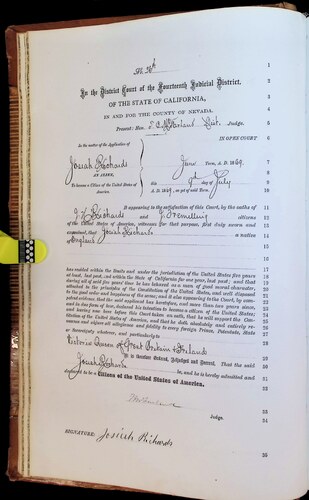 1
In the District Court of the Fourteenth Judicial District, 2
OF THE STATE OF CALIFORNIA, 3
IN AND FOR THE COUNTY OF NEVADA. 4
Present: Hon. Judge. 5
IN OPEN COURT 6
In the matter of the Application of 7
Josiah Richards June Term, A. D. 1869. 8
AN ALIEN, this 9th day of July 9
To become a Citizen of the United States of America. A. D. 1869, as yet of said Term. 10
It appearing to the satisfaction of this Court, by the oaths of
Richards and citizens
of the United States of America, witnesses for that purpose, first duly sworn and
examined, that Josiah Richards a native
of England
has resided within the limits and under the jurisdiction of the United States five years
at least, last past, and within the State of California for one year, last past; and that
during all of said five years' time he has behaved as a man of good moral character,
attached to the principles of the Constitution of the United States, and well disposed
to the good order and happiness of the same; and it also appearing to the Court, by com-
petent evidence, that the said applicant has heretofore, and more than two years since,
and in due form of law, declared his intention to become a citizen of the United States;
and having now here before this Court taken an oath, that he will support the Con-
stitution of the United States of America, and that he doth absolutely and entirely re-
nounce and abjure all allegiance and fidelity to every foreign Prince, Potentate, State
or Sovereignty whatever, and particularly to
Victoria Queen of Great Britain & Ireland
It is therefore Ordered, Adjudged and Decreed, That the said
Josiah Richards be, and he is hereby admitted and
declared to be a Citizen of the United States of America.
Judge. 34
35
SIGNATURE: Josiah Richards
36